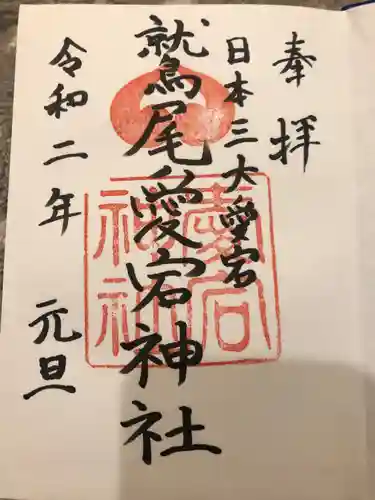 奉拝
日本三大愛宕
鷲尾愛宕神社
愛宕神社
令和二年 元旦